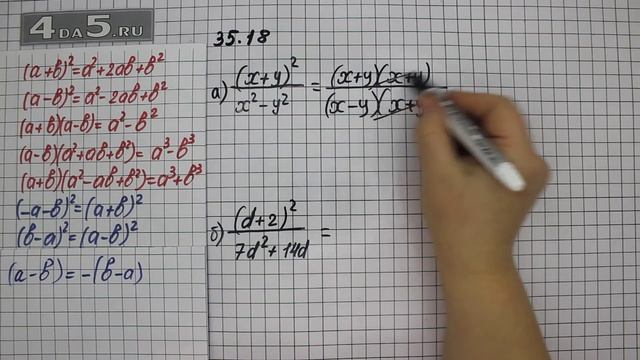 4 DA 5.RU
(a+b)²=a²+2ab+b²
(a-b)²=a²-2ab+b²
(a+b)(a-b)=a²-b²
(a-b)(a²+ab+b²)=a³-b³
(a+b)(a²-ab+b²)=a³+b³
(-a-b)²=(a+b)²
(b-a)²=(a-b)²
(a-b)=-(b-a)
35.18
а) (x+y)² / x²-y² = (x+y)(x+y) / (x-y)(x+y
б) (d+2)² / 7d²+14d =